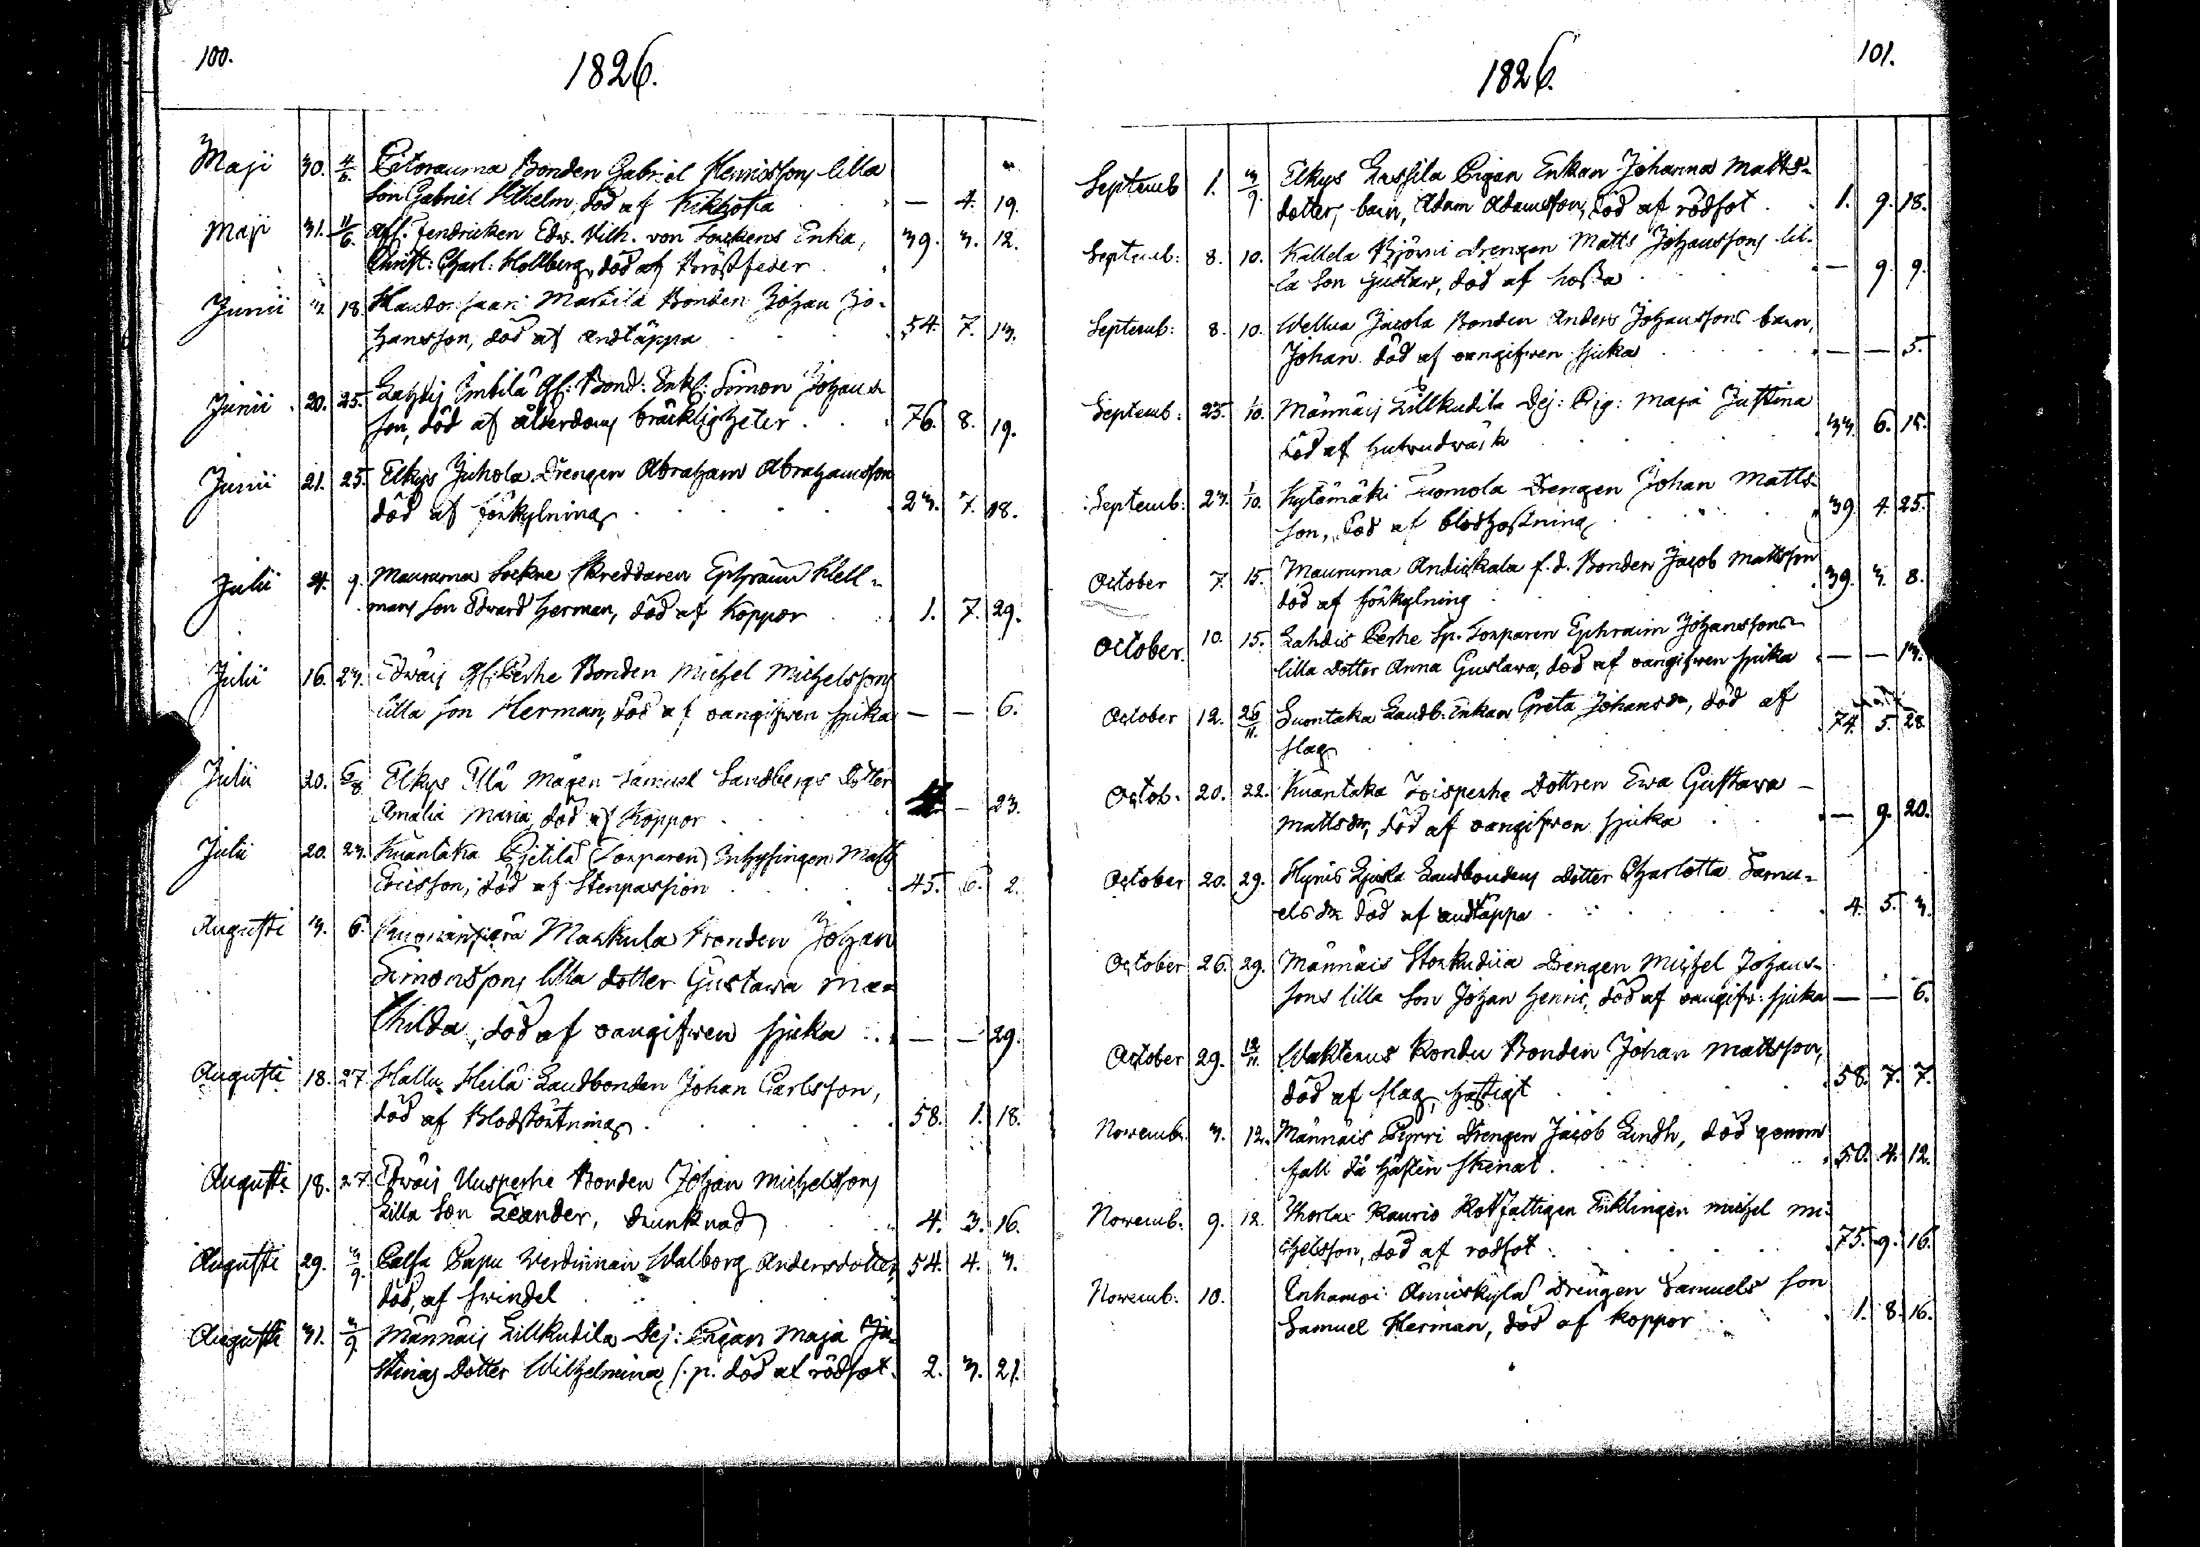 100.
1826.
Maji 30. 4/6. Pitoranma Bonden Gabriel Henricssons lilla
son Gabriel Wilhelm, död af Kikhosta — 4. 19.
Maji 31. 11/6. Afl. Fendricken Edw. Wilh. von Enka,
Christ: Charl: Hollberg, död af Bröstfeber 39. 3. 12.
Junii 3. 18. Martila Bonden Johan Jo-
hansson, död af Andtäppa 54. 7. 13.
Junii 20. 25. Lahdis Gl: Bond: Enkl: Simon Johans
son, död af ålderdoms bräckligheter 76. 8. 19.
Junii 21. 25. Elkys Juhola Drengen Abraham Abrahamsson
död af förkylning 23. 7. 18.
Julii 4. 9. Mauruma Sockne Skreddaren Ephraim Hell-
mans son Edvard Herman, död af Koppor 1. 7. 29.
Julii 16. 23. Perhe Bonden Michel Michelssons
lilla son Herman, död af oangifwen sjuka — — 6.
Julii 20. 6/8 Elkys Ellä Mågen Samuel Sandbergs Dotter
Amalia Maria, död af Koppor — 23.
Julii 20. 23. Kuantaka (Torparen) Inhysingen Matts
Ericsson, död af Stenpassion 45. 6. 2.
Augusti 3. 6. Markula Bonden Johan
Simonssons lilla dotter Gustava Ma-
thilda, död af oangifwen sjuka — — 29.
Augusti 18. 27. Hallu Heilä Landbonden Johan Carlsson,
död af Blodstörtning 58. 1. 18.
Augusti 18. 27. Uusperhe Bonden Johan Michelssons
Lilla Son Leander, drunknad 4. 3. 16.
Augusti 29. 3/9. Papu Werdinnan Walborg Andersdotter
död, af swindel 54. 4. 3.
Augusti 31. 3/9. Männäis Lillkudila Dej: Pigan Maja Ju-
stinas Dotter Wilhelmina, s. p. död af rödsot 2. 3. 21.
101.
1826.
Septemb 1. 3/9. Elkys Lassila Pigan Enkan Johanna Matts-
dotter, barn, Adam Adamsson, död af rödsot 1. 9. 18.
Septemb: 8. 10. Kallela Björni Drengen Matts Johanssons lil-
la Son Gustav, död af hosta — 9. 9.
Septemb: 8. 10. Wellua Jacola Bonden Anders Johanssons barn,
Johan död af oangifwen sjuka — — 5.
Septemb: 25. 1/10. Männäis Lillkudila Dej: Pig: Maja Justina
död af hufvudwärk 33. 6. 15.
Septemb: 23. 1/10. Kylämäki Tuomola Drengen Johan Matts-
son, död af blodhostning 39. 4. 25.
October 7. 15. Mauruma Andickala f. d. Bonden Jacob Mattsson
död af förkylning 39. 3. 8.
October. 10. 15. Lahdis Perhe Sp. Torparen Ephraim Johanssons
lilla dotter Anna Gustava, död af oangifwen sjuka — — 13.
October 12. 26/11. Suontaka Landb. Enkan Greta Johansdr, död af
slag 74. 5. 28.
Octob. 20. 22. Kuantaka Dottren Ewa Gustava
Mattsdr, död af oangifwen sjuka — 9. 20.
October 20. 29. Landbondens Dotter Charlotta Samu-
elsdr död af andtäppa 4. 5. 3.
October 26. 29. Männäis Storkudila Drengen Michel Johans-
sons lilla son Johan Henric, död af oangifw: sjuka — — 6.
October 29. 12/11. Wakterus Kondu Bonden Johan Mattsson,
död af slag, hastigt 58. 7. 7.
Novemb. 3. 12. Männäis Pyrri Drengen Jacob Lindh, död genom
fall då hästen skenat. 50. 4. 12.
Novemb: 9. 12. Kaurio Rotfattigen Enklingen Michel Mi-
chelsson, död af rodsot 75. 9. 16.
Novemb: 10. Änniskylä Drengen Samuels son
Samuel Herman, död af koppor 1. 8. 16.